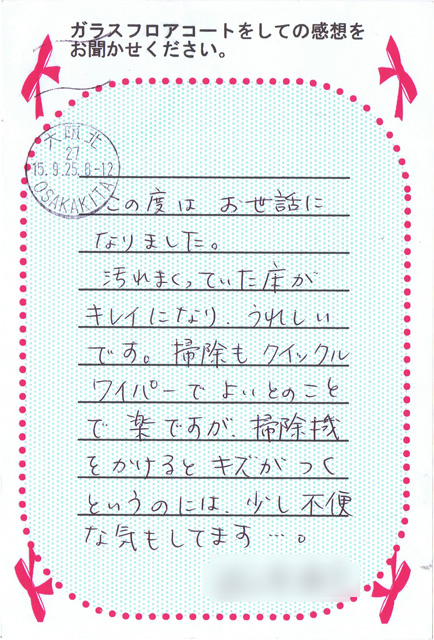 ガラスフロアコートをしての感想を
お聞かせください。
大阪北
27
15.9.25.8-12
OSAKAKITA
この度は お世話に
なりました。
汚れまくっていた床が
キレイになり、うれしい
です。掃除も クイックル
ワイパーで よいとのこと
で 楽ですが、掃除機
をかけると キズが つく
というのには、少し 不便
な気もしてます…。